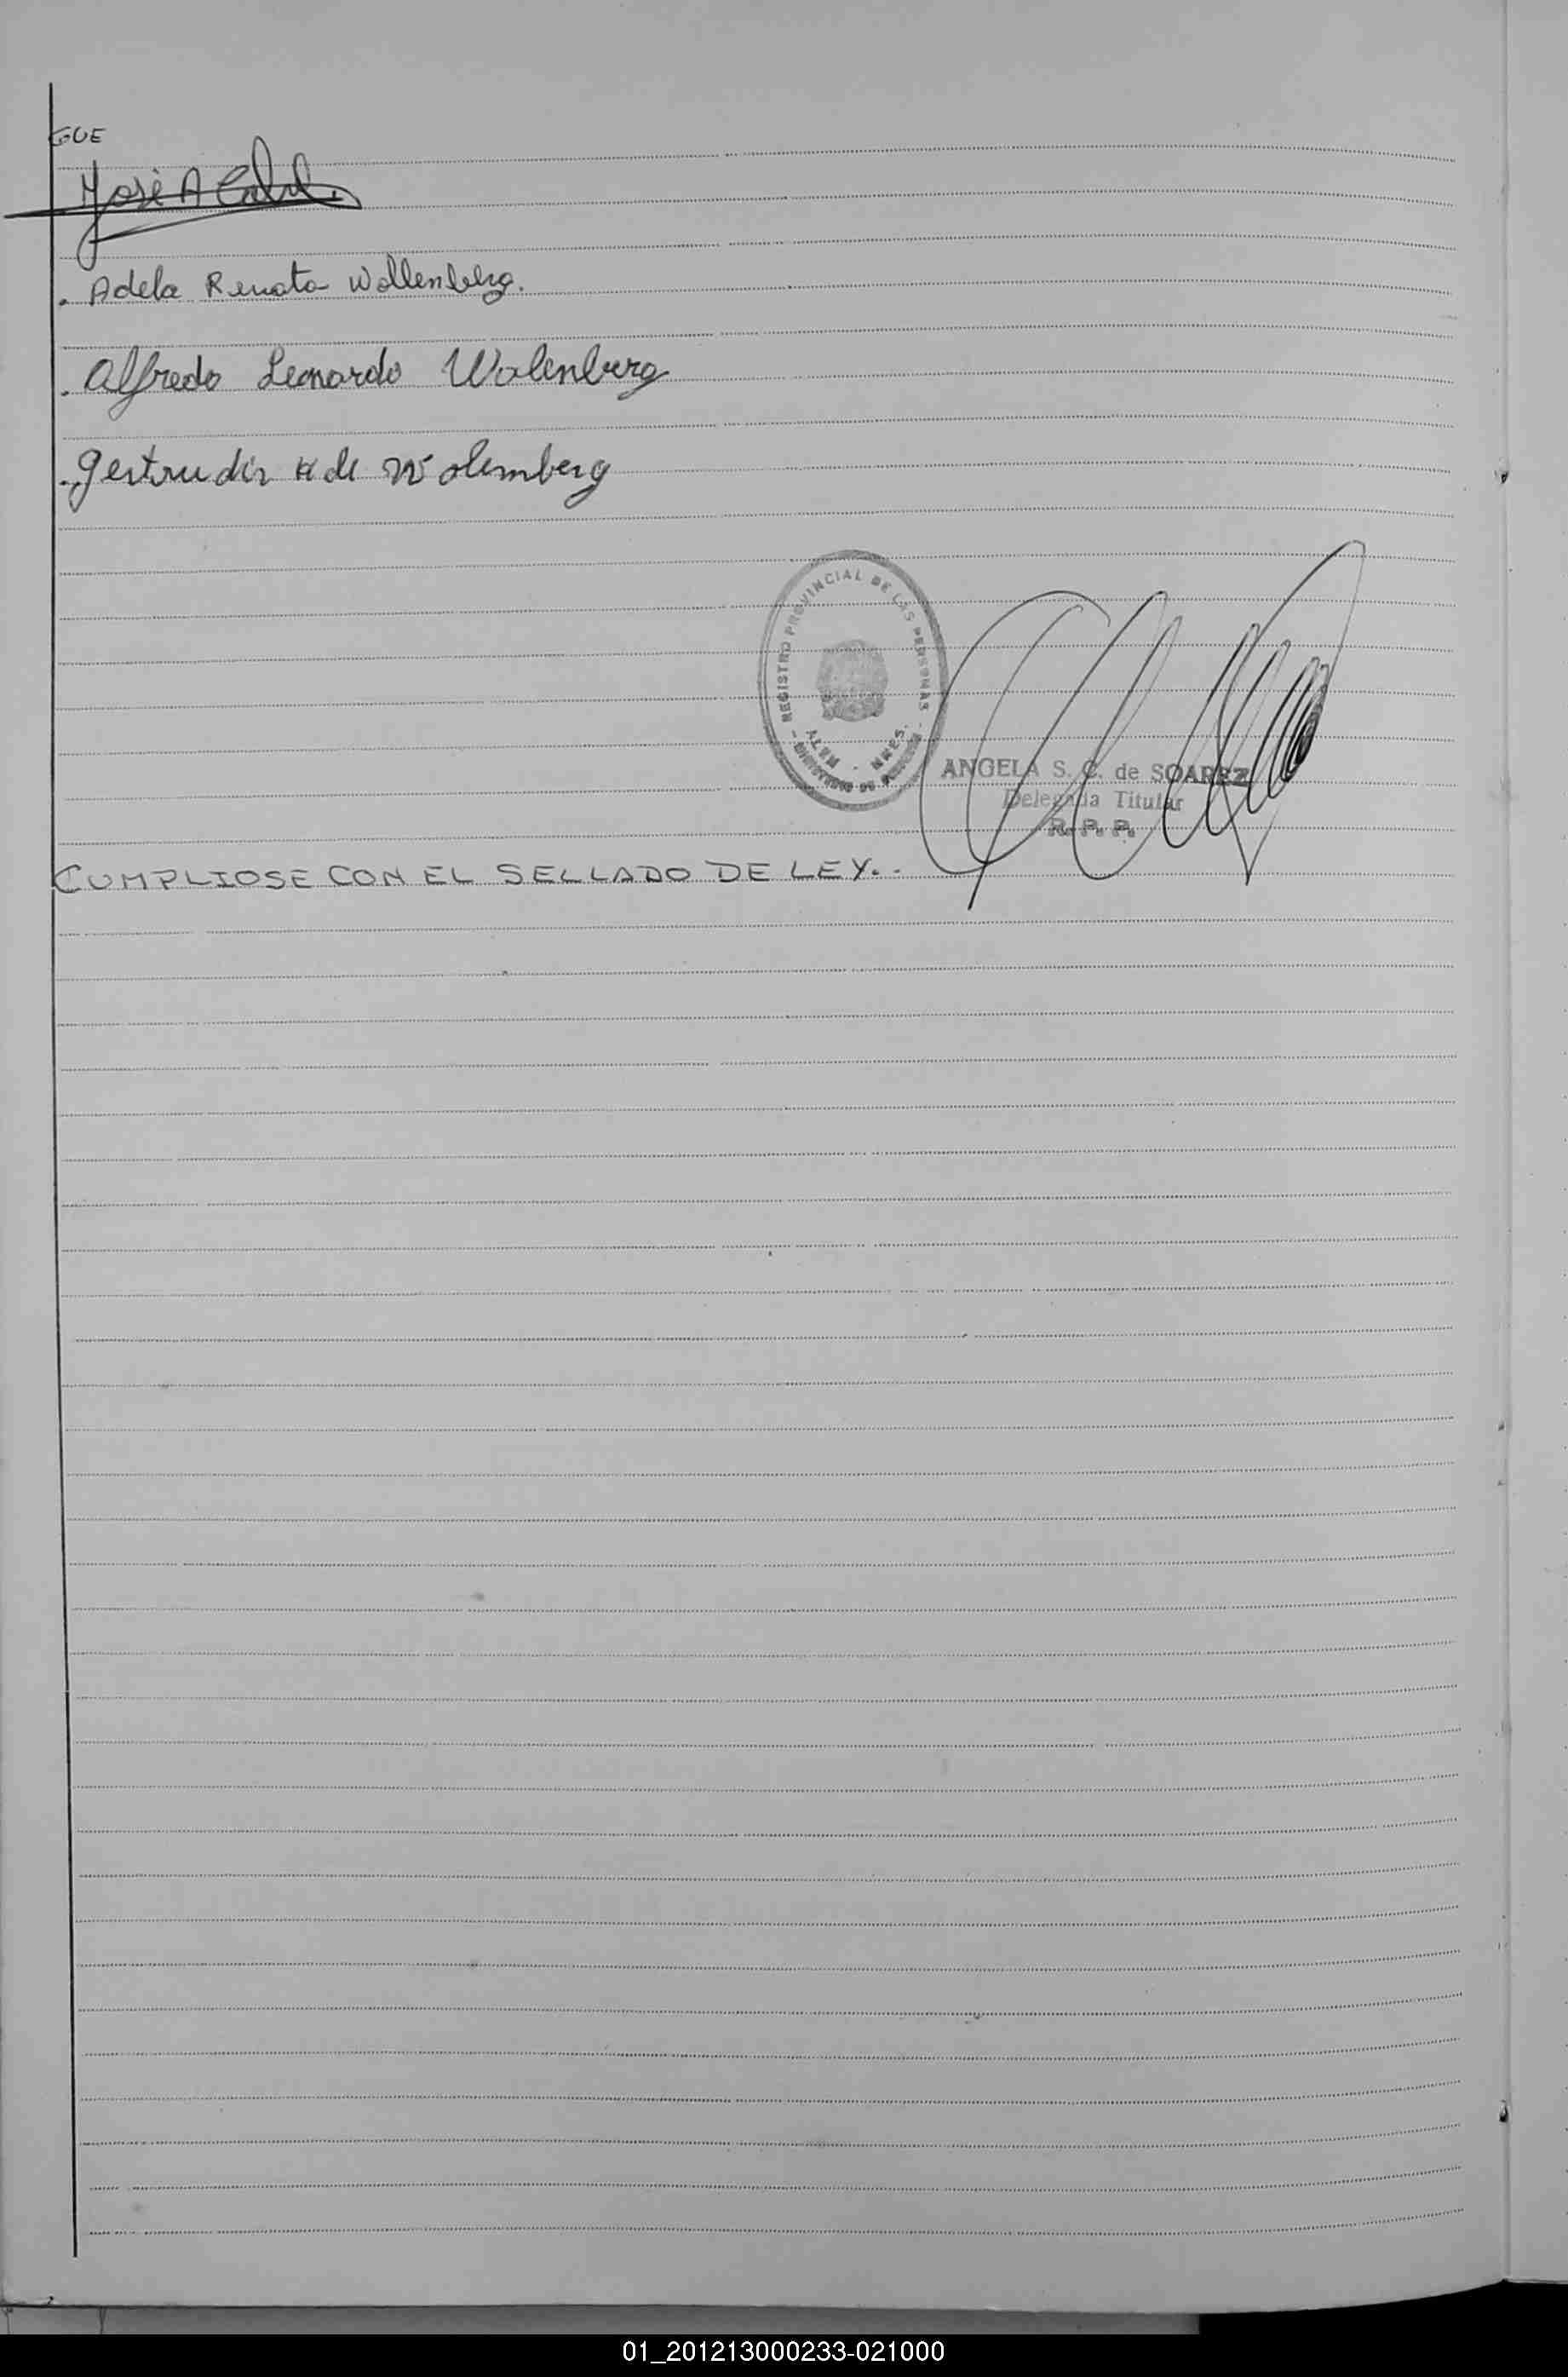 GUE
José A
. Adela Renata Wollenberg.
. Alfredo Leonardo Wolenberg
. Gertrudis H de Wolemberg
- REGISTRO PROVINCIAL DE LAS PERSONAS -
ALEM - MNES.
ANGELA S. C. de SOAREZ
Delegada Titular
R. P. P.
CUMPLIOSE CON EL SELLADO DE LEY. -
01_201213000233-021000